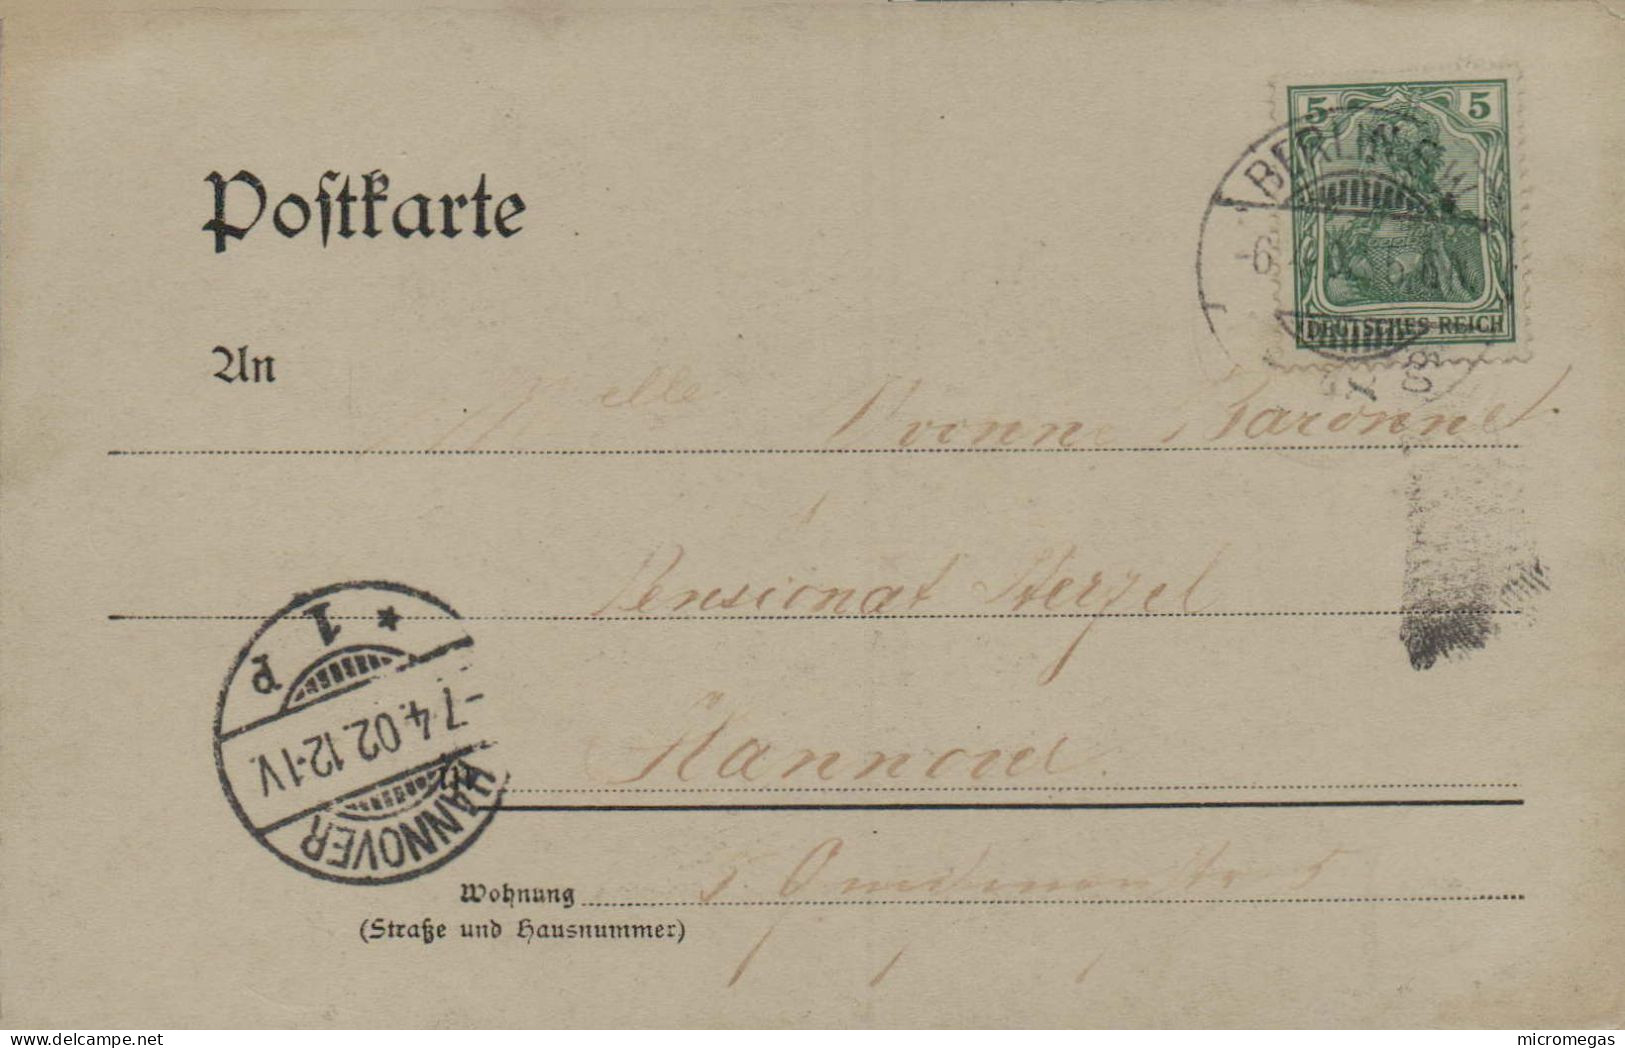 Postkarte
5 5
BERLIN SW
DEUTSCHES REICH
An
Melle Yvonne Baronnet
Pensionat Herzel
1 P
-7.4.02.12-1V.
HANNOVER
in
Hannover
Wohnung
5
(Straße und Hausnummer)
delcampe.net
micromegas